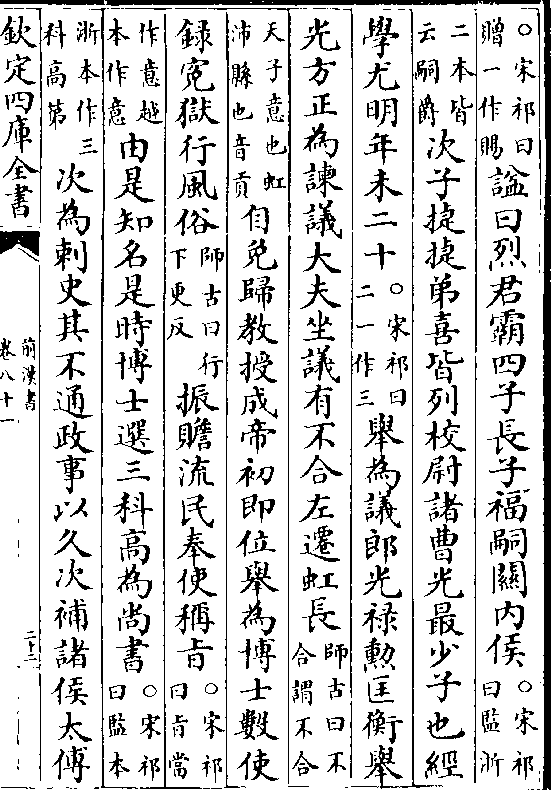 ○宋祁曰贈一作賜諡曰烈君霸四子長子福嗣關内侯○宋祁曰監浙
二本皆云嗣爵次子捷捷弟喜皆列校尉諸曹光最少子也經
學尤明年未二十○宋祁曰二一作三舉為議郎光祿勲匡衡舉
光方正為諫議大夫坐議有不合左遷虹長師古曰不合謂不合
天子意也虹沛縣也音貢自免歸教授成帝初即位舉為博士數使
録寃獄行風俗師古曰行下更反振贍流民奉使稱旨○宋祁曰旨當
作意越本作意由是知名是時博士選三科高為尚書○宋祁曰監本
浙本作三科高第次為刺史其不通政事以久次補諸侯太傅
欽定四庫全書
前漢書
卷八十一
二十二